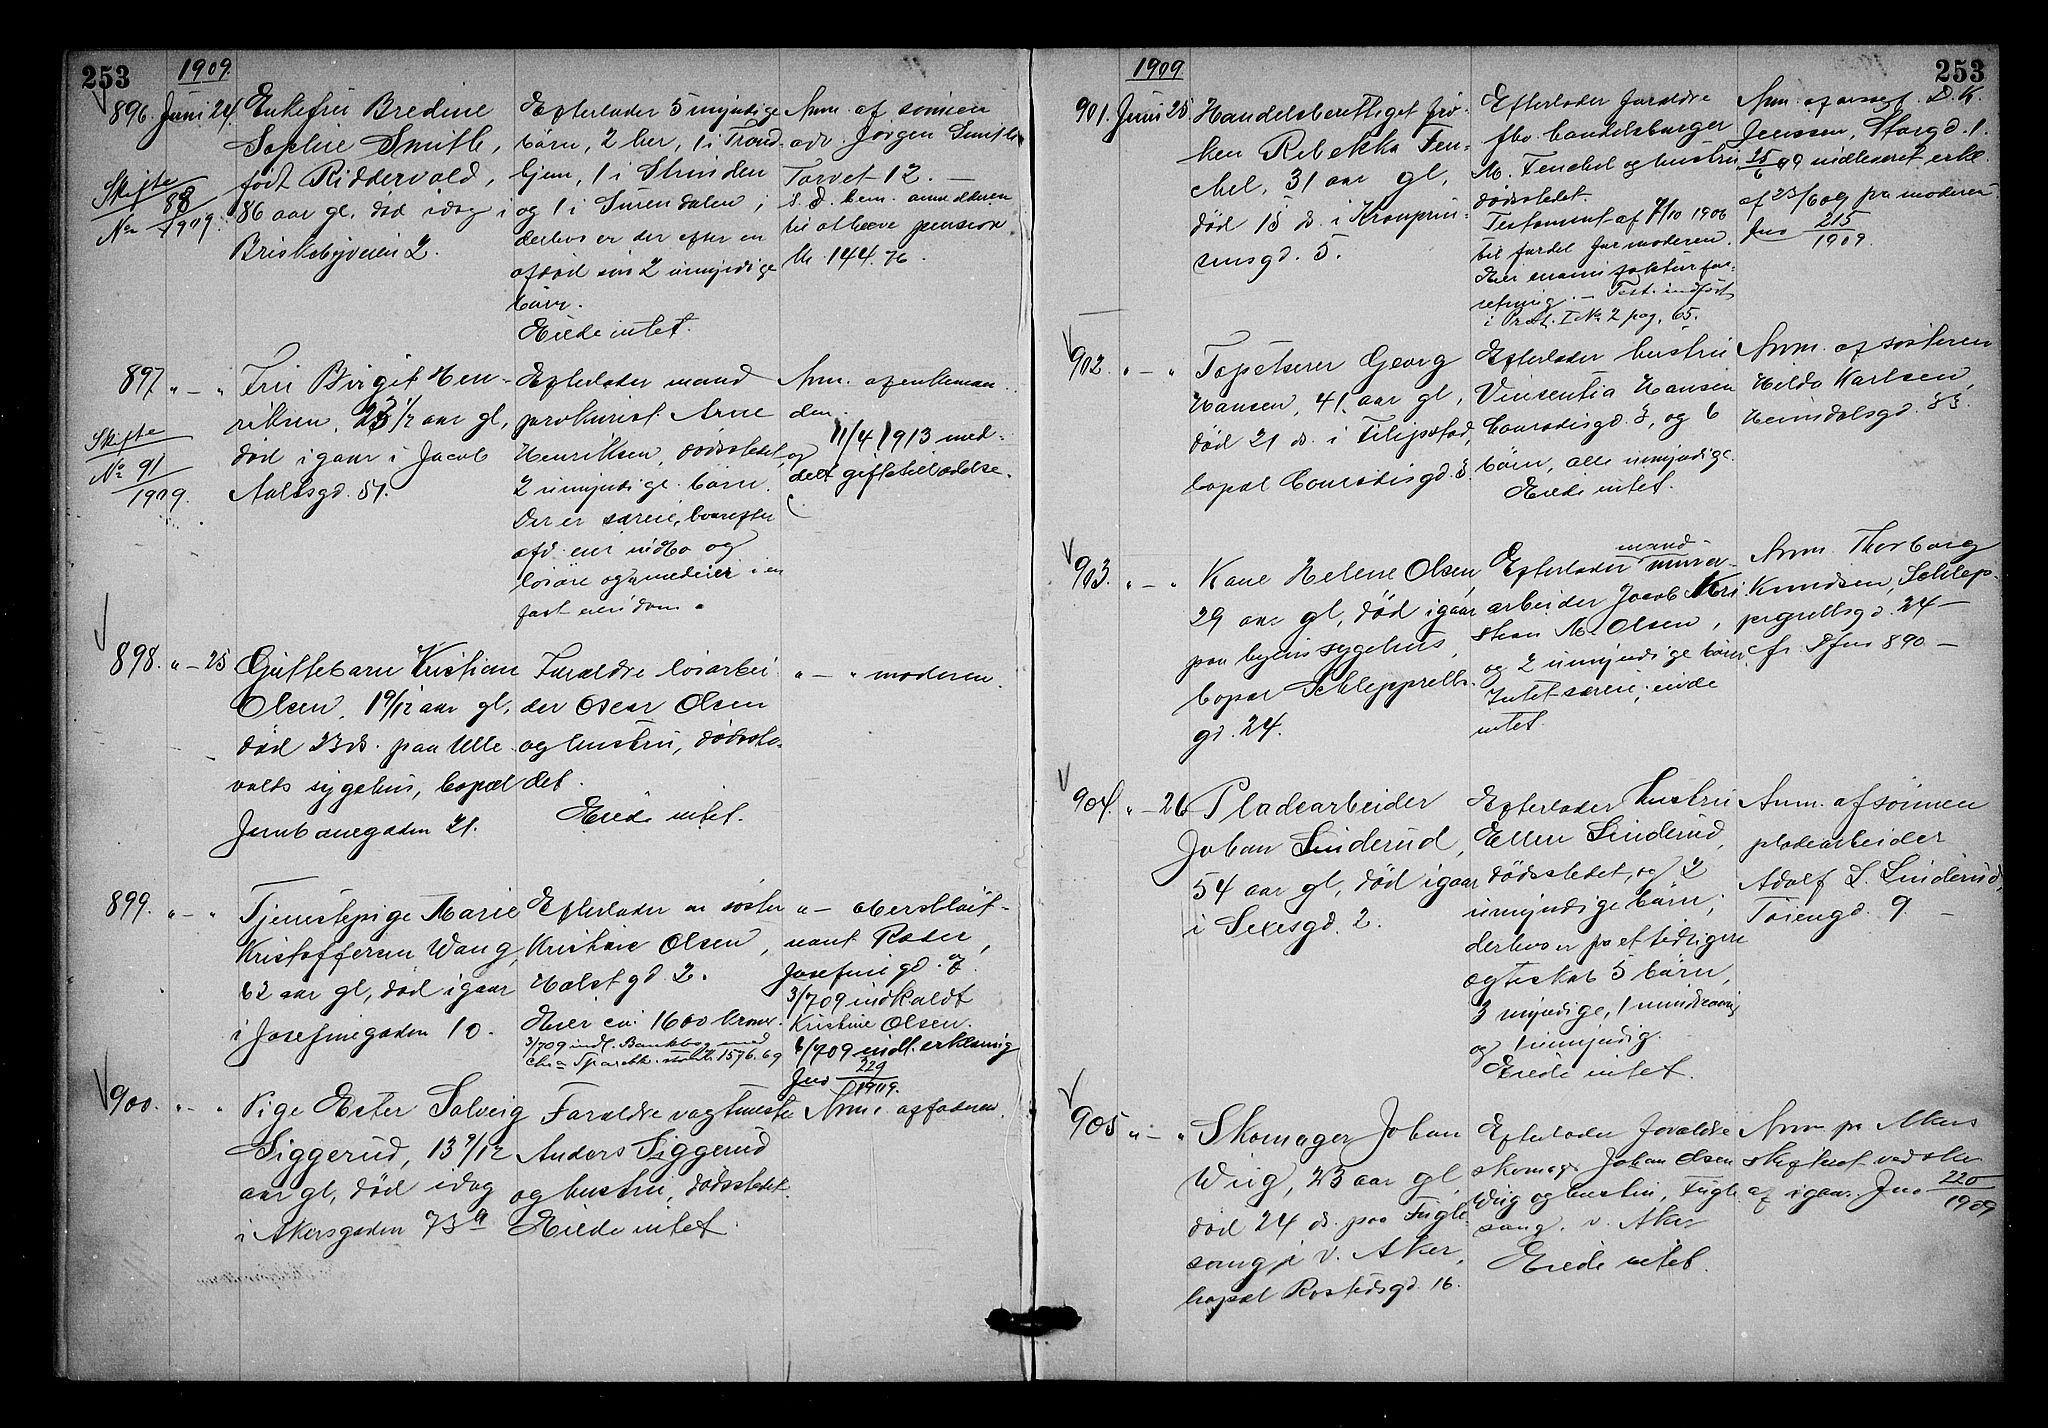 253
1909.
896. Juni 24.
Enkefru Bredine
Sophie Smith,
født Riddervold,
86 aar gl, død idag i
Briskebyveien 2.
Skifte
No 88
1909.
Efterlader 5 myndige
børn, 2 her, 1 i Trond-
hjem, 1 i Strinden
og 1 i Surendalen,
derhos er der efter en
afdød søn 2 umyndige
børn.
Eiede intet.
Anm. af sønnen
adv. Jørgen Smith
Torvet 12. —
S. D. bem. anmelderen
til at hæve pension
kr. 144.76.
897. " — "
Fru Birgit Hen-
riksen, 23 1/2 aar gl,
død igaar i Jacob
Aallsgd. 51.
Skifte
No 91
1909.
Efterlader mand
prokurist Arne
Henriksen, dødsstedet, og
2 umyndige børn.
Der er særeie, hvorefter
afd. eier indbo og
løsøre og medeier i en
fast eiendom.
Anm. af enkeman-
den.
11/4 1913 med-
delt giftetilladelse.
898. " — 25
Guttebarn Kristian
Olsen, 1 9/12 aar gl,
død 23 ds. paa Ulle-
valds sygehus, bopæl
Jernbanegaden 21.
Forældre løsarbei-
der Oscar Olsen
og hustru, dødsste-
det.
Eiede intet.
" — " moderen.
899. " — "
Tjenestepige Marie
Kristoffersen Wang,
62 aar gl, død igaar
i Josefinegaden 10.
Efterlader en søster
Kristine Olsen,
Holstgd. 2.
Eier ca. 1600 kroner.
3/7 09 indl. Bankbog med
Chra Sparebk. stor kr. 1576.69
" — oberstløit-
nant Roder,
Josefinegd. 7.
3/7 09 indkaldt
Kristine Olsen.
6/7 09 indl. erklæring
Jno 229
1909.
900. " — "
Pige Ester Solveig
Siggerud, 13 9/12
aar gl, død idag
i Akersgaden 73 a
Forældre vagtmester
Anders Siggerud
og hustru, dødsstedet.
Eiede intet.
Anm. af faderen.
1909
253
901. Juni 25
Handelsberettiget frø-
ken Rebekka Fen-
chel, 31 aar gl,
død 15 ds. i Kronprin-
sensgd. 5.
Efterlader forældre
fhv. handelsborger
M. Fenchel og hustru
dødsstedet.
Testament af 7/10 1906
til fordel for moderen.
Eier manufakturfor-
retning. — Test. indført
i Prot. I No 2 pag. 65.
Anm. af overretss. D. K.
Jenssen, Storgd. 1.
25/6 09 indleveret erkl.
af 23/6 09 fra moderen
Jno 215
1909.
902. " — "
Tapetserer Georg
Hansen, 41 aar gl,
død 21 ds. i Filipstad,
bopæl Conradisgd. 3.
Efterlader hustru
Vinsentia Hansen
Conradisgd. 3, og 6
børn, alle umyndige.
Eiede intet.
Anm. af søsteren
Hilda Karlsen,
Heimdalsgd. 33.
903. " — "
Kone Helene Olsen,
29 aar gl, død igaar
paa byens sygehus,
bopæl Schleppegrells-
gd. 24.
mand
Efterlader murer-
arbeider Jacob Kri-
stian M. Olsen,
og 2 umyndige børn.
Intet særeie; eiede
intet.
Anm. Thorborg
Knudsen, Schlep-
pegrellsgd. 24 —
cfr. Dfno 890 —
904. " — 26
Pladearbeider
Johan Linderud,
54 aar gl, død igaar
i Sexesgd. 2.
Efterlader hustru
Ellen Linderud,
dødsstedet, og 2
umyndige børn;
derhos er fra et tidligere
ægteskab 5 børn,
3 myndige, 1 mindreaarig
og 1 umyndig.
Eiede intet.
Anm. af sønnen
pladearbeider
Adolf L. Linderud,
Tøiengd. 9. —
905 " — "
Skomager Johan
Wiig, 23 aar gl,
død 24 ds. paa Fugle-
sang i V. Aker,
bopæl Rostedsgd. 16.
Efterlader forældre
skomager Johan Olsen
Wiig og hustru, Fugle-
sang, V. Aker
Eiede intet.
Anm. fra Akers
skifteret ved skr.
af igaar, Jno 220
1909